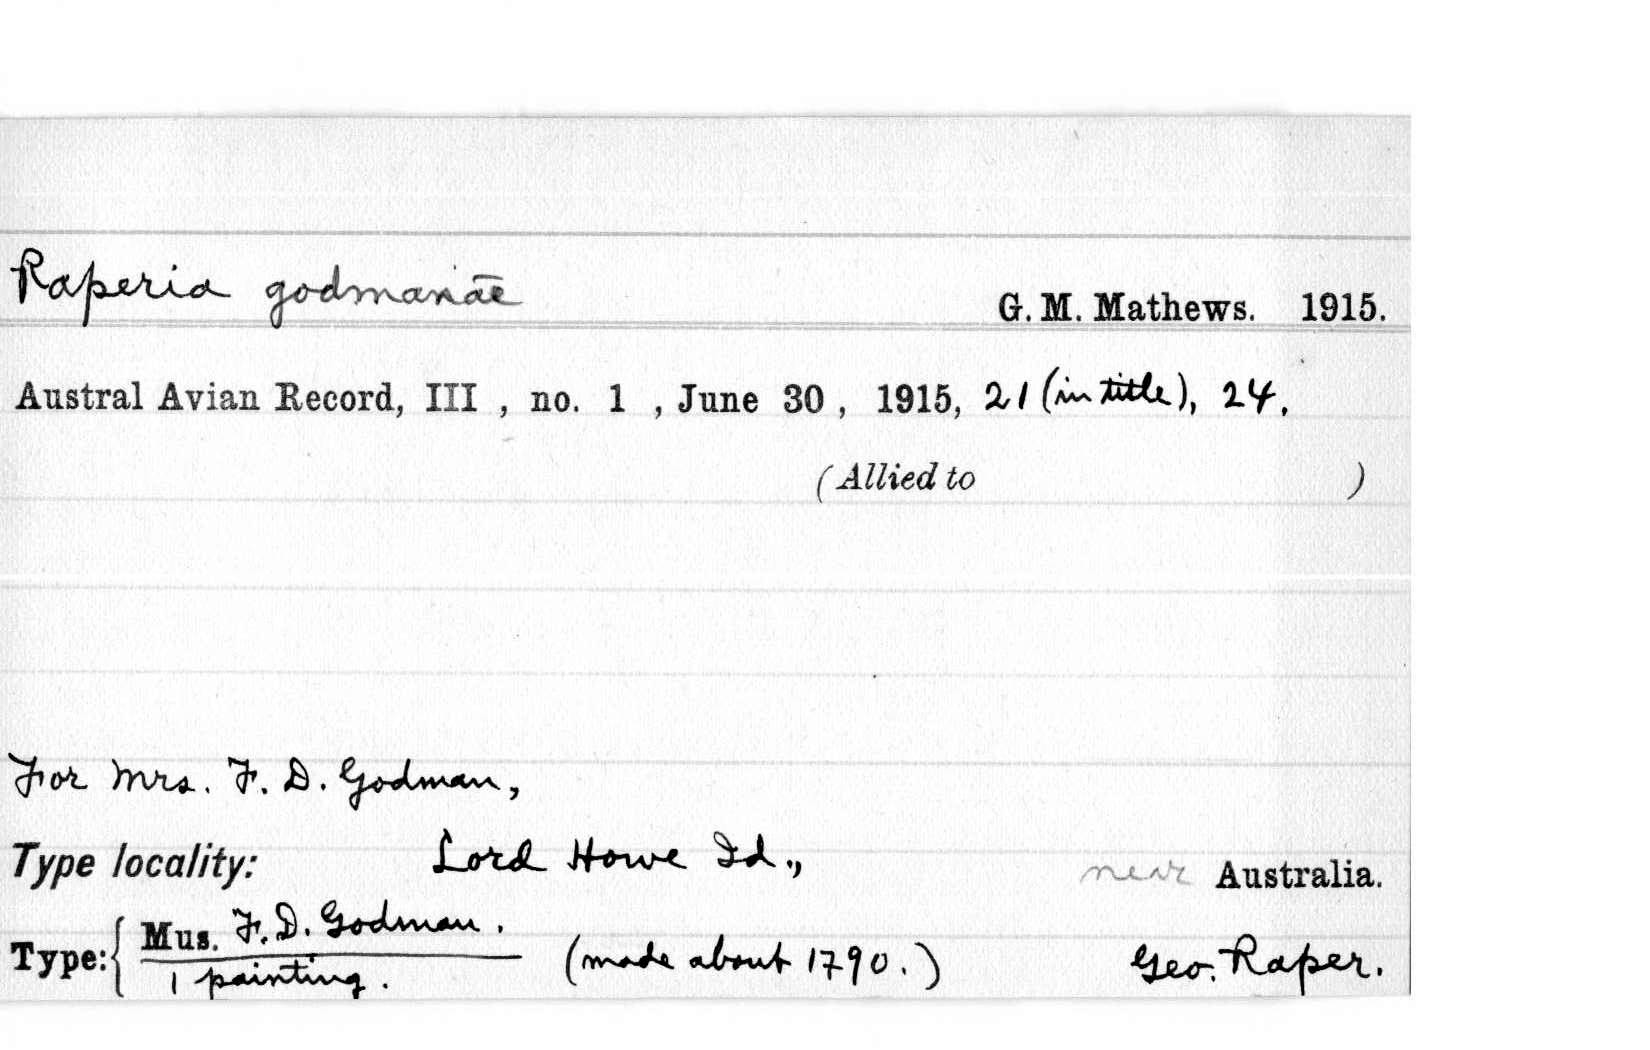 Raperia godmanae
G. M. Mathews. 1915.
Austral Avian Record, III , no. 1 , June 30 , 1915, 21 (in title), 24.
(Allied to )
For Mrs. F. D. Godman,
Type locality: Lord Howe Id., near Australia.
Type: { Mus. F. D. Godman.
1 painting. (made about 1790.) Geo. Raper.